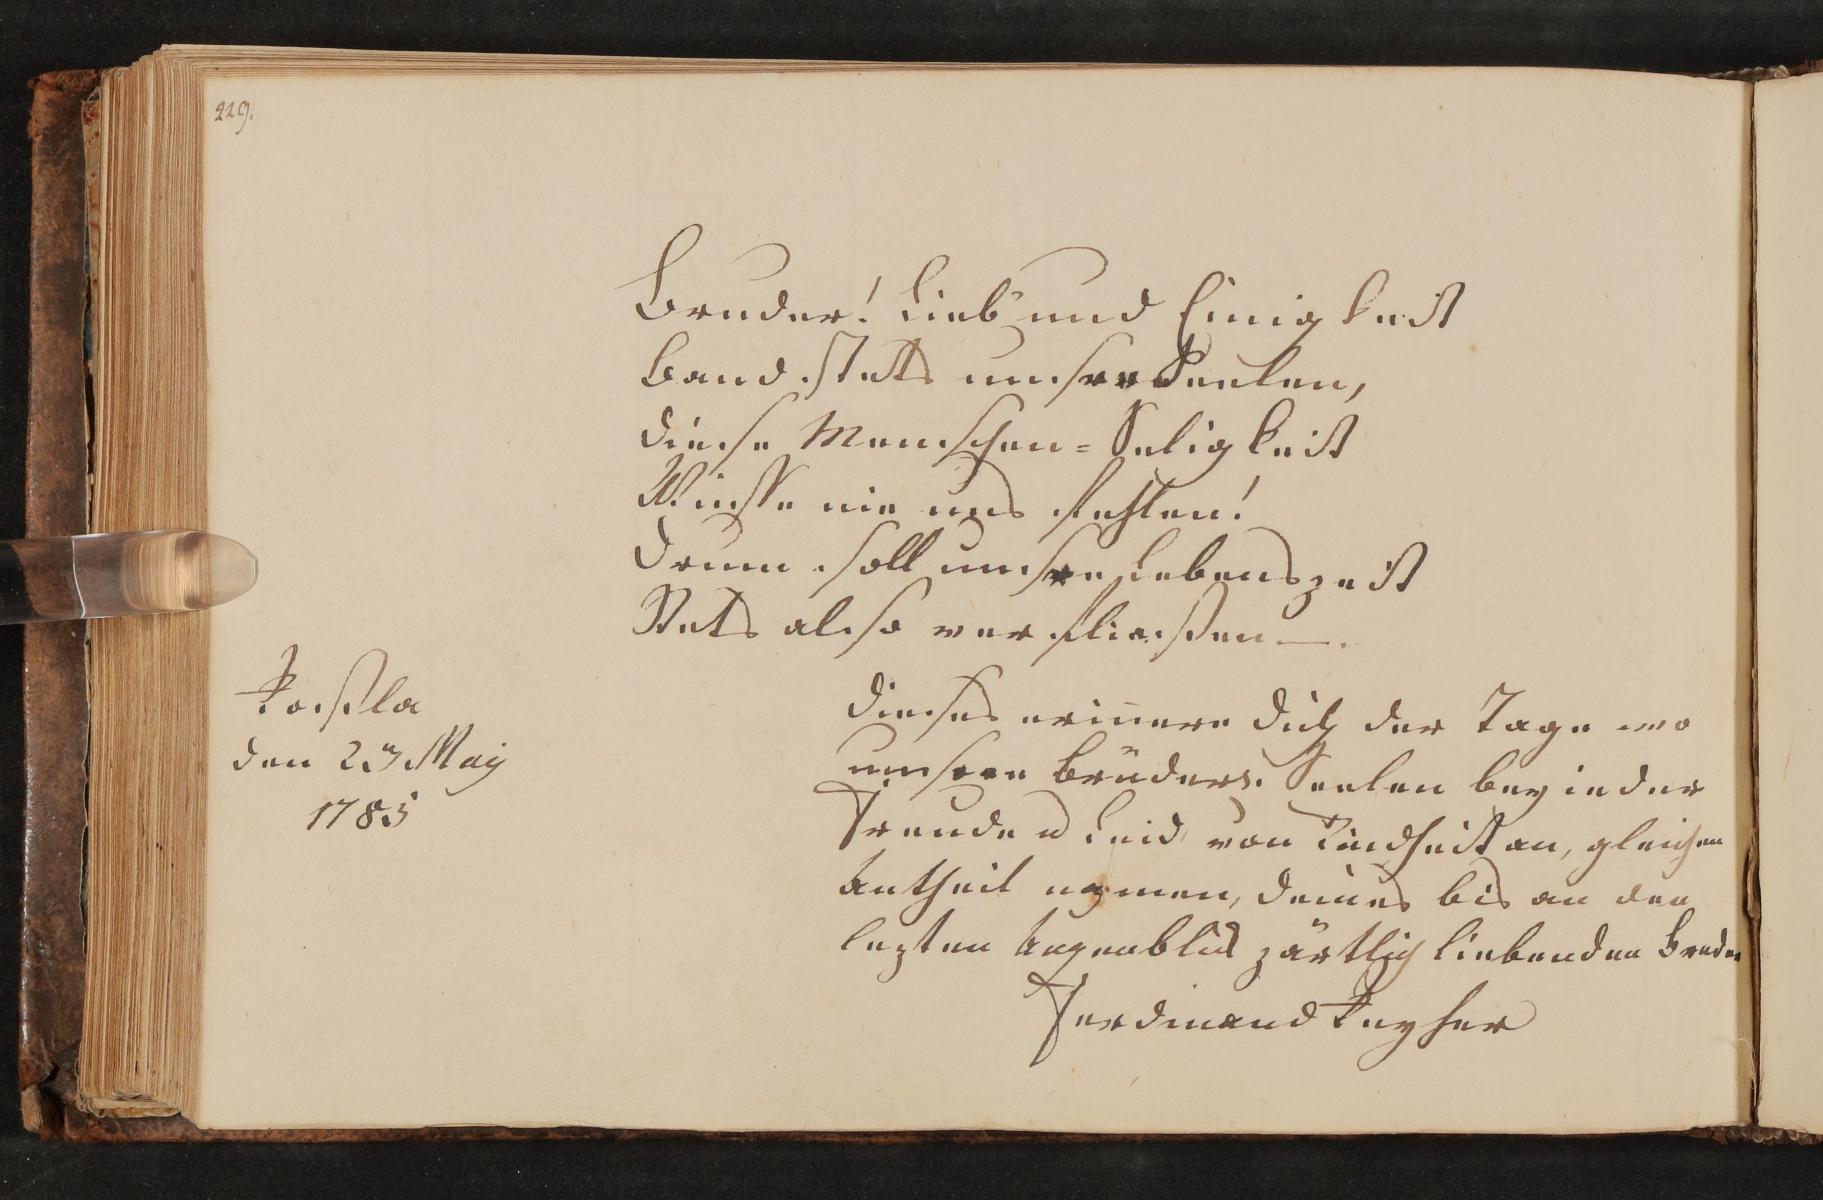 229.
Bruder! Lieb' und Einigkeit
Band stets unsere Seelen,
Diese Menschen=Seligkeit
Müsse nie uns fehlen!
Drum soll unsre Lebenszeit
Stets also verfließen —.
Dieses erinnere Dich der Tage wo
unsere Brüders. Seelen bey ieder
Freude u Leid von Kindheit an, gleichen
Antheil namen, Deines bis an den
lezten Augenblick zärtlich liebenden Bruder
Ferdinand Keyser
den 23 May
1785